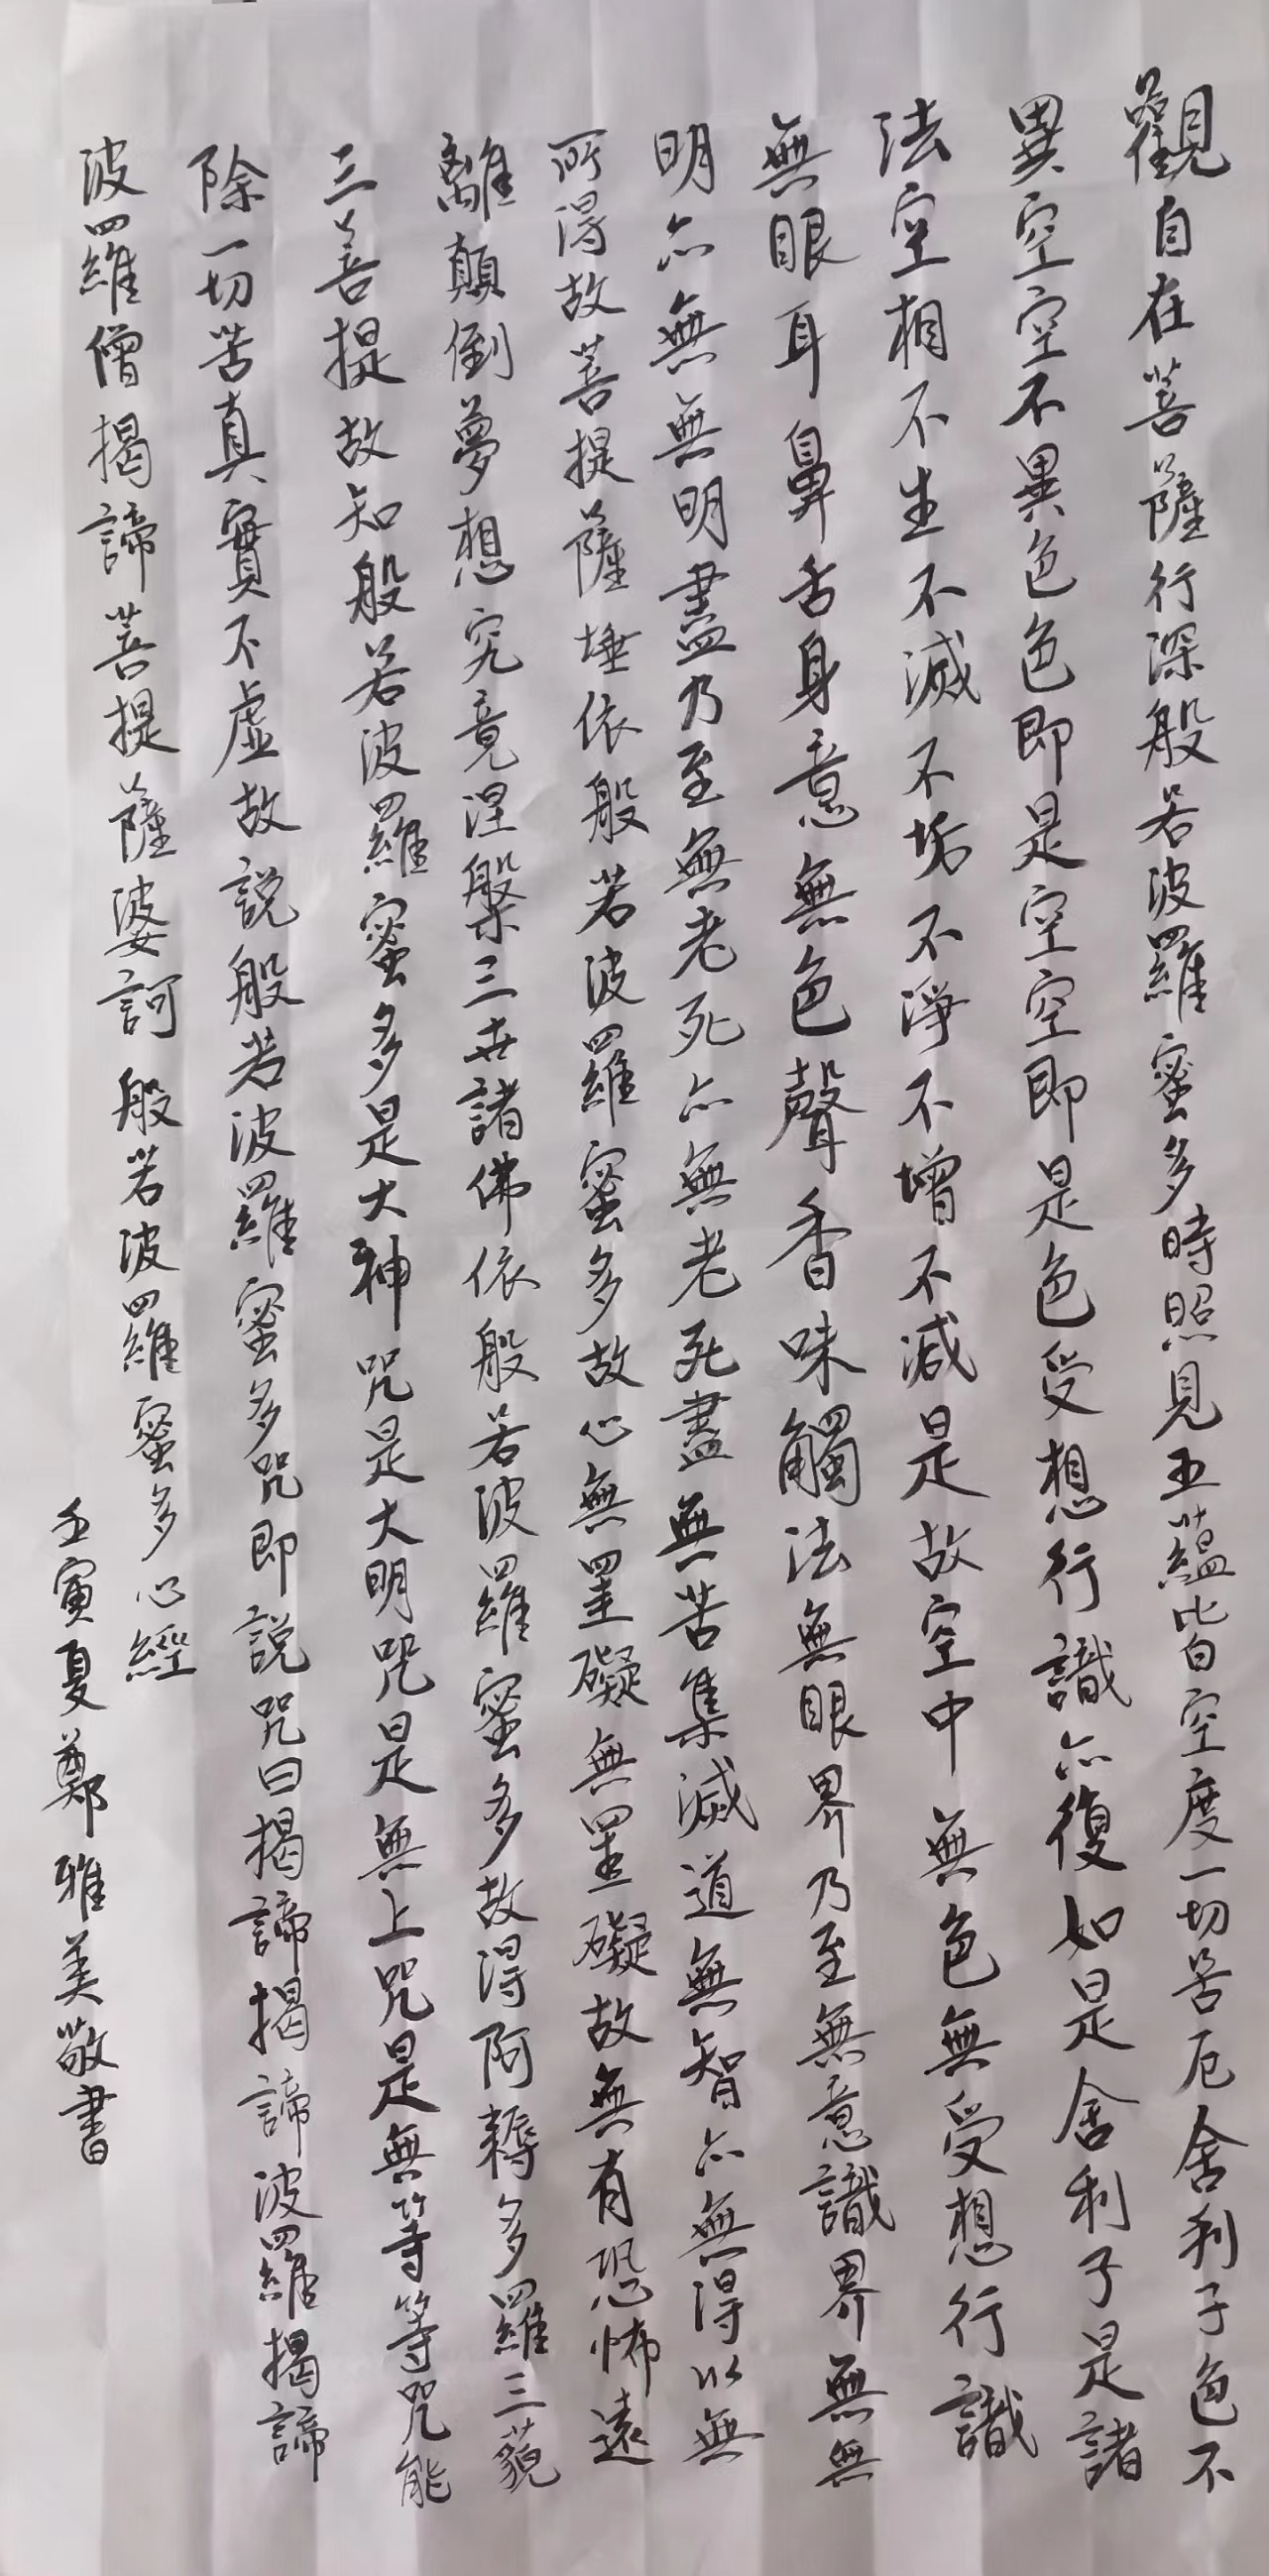 觀自在菩薩行深般若波羅蜜多時照見五蘊皆空度一切苦厄舍利子色不
異空空不異色色即是空空即是色受想行識亦復如是舍利子是諸
法空相不生不滅不垢不淨不增不減是故空中無色無受想行識
無眼耳鼻舌身意無色聲香味觸法無眼界乃至無意識界無無
明亦無無明盡乃至無老死亦無老死盡無苦集滅道無智亦無得以無
所得故菩提薩埵依般若波羅蜜多故心無罣礙無罣礙故無有恐怖遠
離顛倒夢想究竟涅槃三世諸佛依般若波羅蜜多故得阿耨多羅三藐
三菩提故知般若波羅蜜多是大神咒是大明咒是無上咒是無等等咒能
除一切苦真實不虛故說般若波羅蜜多咒即說咒曰揭諦揭諦波羅揭諦
波羅僧揭諦菩提薩婆訶般若波羅蜜多心經
壬寅夏鄭雅美敬書